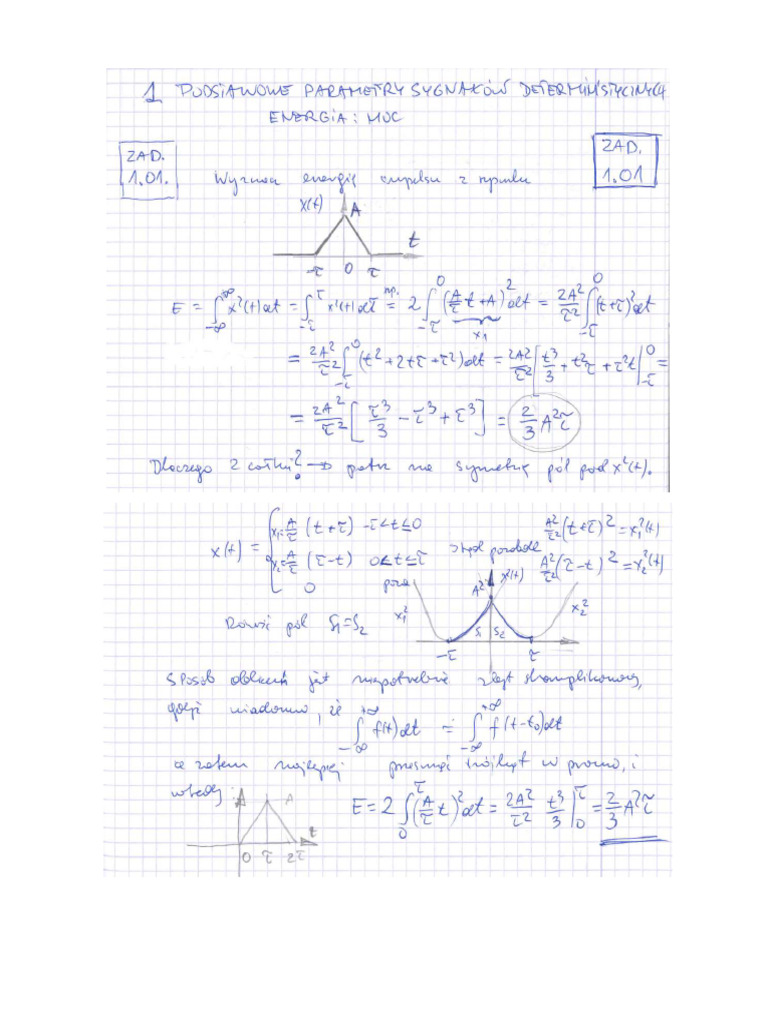 1 PODSTAWOWE PARAMETRY SYGNAŁÓW DETERMINISTYCZNYCH
ENERGIA i MOC
ZAD. 1.01.
ZAD. 1.01
Wyznacz energię impulsu z rysunku
x(t)
A
t
-τ 0 τ
E = ∫_{-∞}^{+∞} x²(t)dt = ∫_{-τ}^{τ} x²(t)dt = np. 2∫_{-τ}^{0} (A/τ t + A)² dt = 2A²/τ² ∫_{-τ}^{0} (t+τ)² dt
x₁
= 2A²/τ² ∫_{-τ}^{0} (t² + 2tτ + τ²)dt = 2A²/τ² | t³/3 + t²τ + τ²t |_{-τ}^{0} =
= 2A²/τ² [ τ³/3 - τ³ + τ³ ] = 2/3 A²τ
Dlaczego 2 całki? → patrz na symetrię pól pod x²(t).
x(t) = { x₁ = A/τ (t+τ) -τ<t≤0
x₂ = A/τ (τ-t) 0<t≤τ
0 poza
Stąd parabole
A²/τ² (t+τ)² = x₁²(t)
A²/τ² (τ-t)² = x₂²(t)
x₁² A² x²(t) x₂²
S₁ S₂
-τ τ
Równość pól S₁=S₂
Sposób obliczeń jest niepotrzebnie zbyt skomplikowany,
gdyż wiadomo, że
∫_{-∞}^{+∞} f(t)dt = ∫_{-∞}^{+∞} f(t-t₀)dt
a zatem najlepiej przesunąć trójkąt w prawo, i
wtedy:
A A
t
0 τ 2τ
E = 2 ∫_{0}^{τ} (A/τ t)² dt = 2A²/τ² t³/3 |_{0}^{τ} = 2/3 A²τ